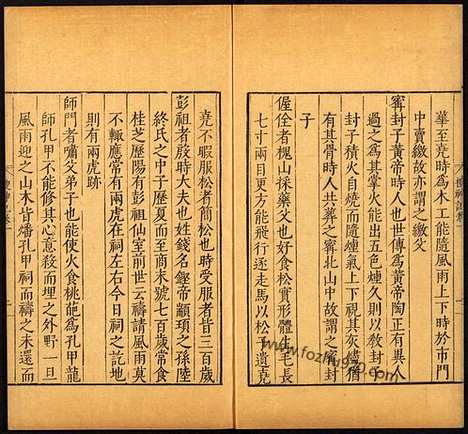 華至堯時爲木工能隨風雨上下時於市門
中賣繳故亦謂之繳父
寗封子黃帝時人也世傳爲黃帝陶正有異人
過之爲其掌火能出五色煙久則以教封子
封子積火自燒而隨煙氣上下視其灰燼猶
有其骨時人共葬之寗北山中故謂之寗封
子
偓佺者槐山採藥父也好食松實形體生毛長
七寸兩目更方能飛行逐走馬以松子遺堯
堯不暇服松者簡松也時受服者皆三百歲
彭祖者殷時大夫也姓錢名鏗帝顓頊之孫陸
終氏之中子歷夏而至商末號七百歲常食
桂芝歷陽有彭祖仙室前世云禱請風雨莫
不輒應常有兩虎在祠左右今日祠之訖地
則有兩虎跡
師門者嘯父弟子也能使火食桃葩爲孔甲龍
師孔甲不能修其心意殺而埋之外野一旦
風雨迎之山木皆燔孔甲祠而禱之未還而
www.fozhu920.com